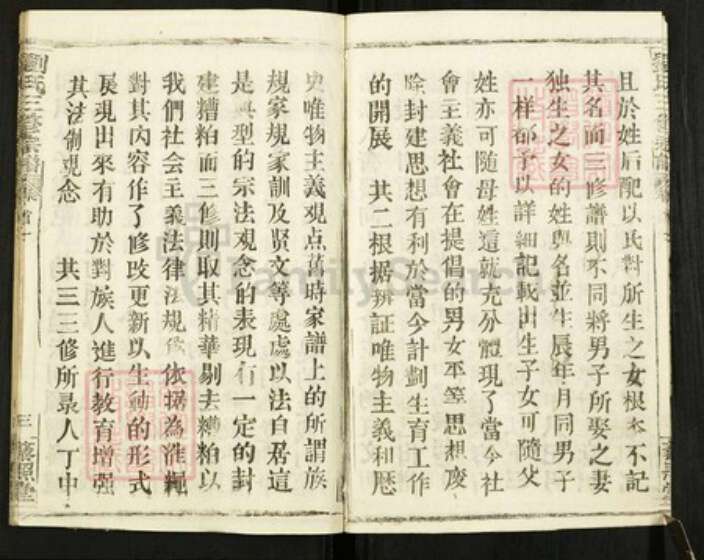 且於姓后配以氏對所生之女根本不記
其名而三修譜則不同將男子所娶之妻
独生之女的姓與名並生辰年月同男子
一样都予以詳細記載田生子女可隨父
姓亦可随母姓這就充分體現了當今社
會主義社會在提倡的男女平等思想廢
除封建思想有利於當今計劃生育工作
的開展 其二根据辨証唯物主義和歷
史唯物主義观点舊時家譜上的所謂族
規家規家訓及賢文等處處以法自居這
是典型的宗法观念的表現有一定的封
建糟粕而三修則取其精華剔去糟粕以
我們社会主義法律法規 依据為准繩
對其內容作了修改更新以生动的形式
展現出來有助於對族人進行教育增强
其法制观念 其三三修所录人丁中
劉氏三修宗譜 卷首
三
FamilySearch